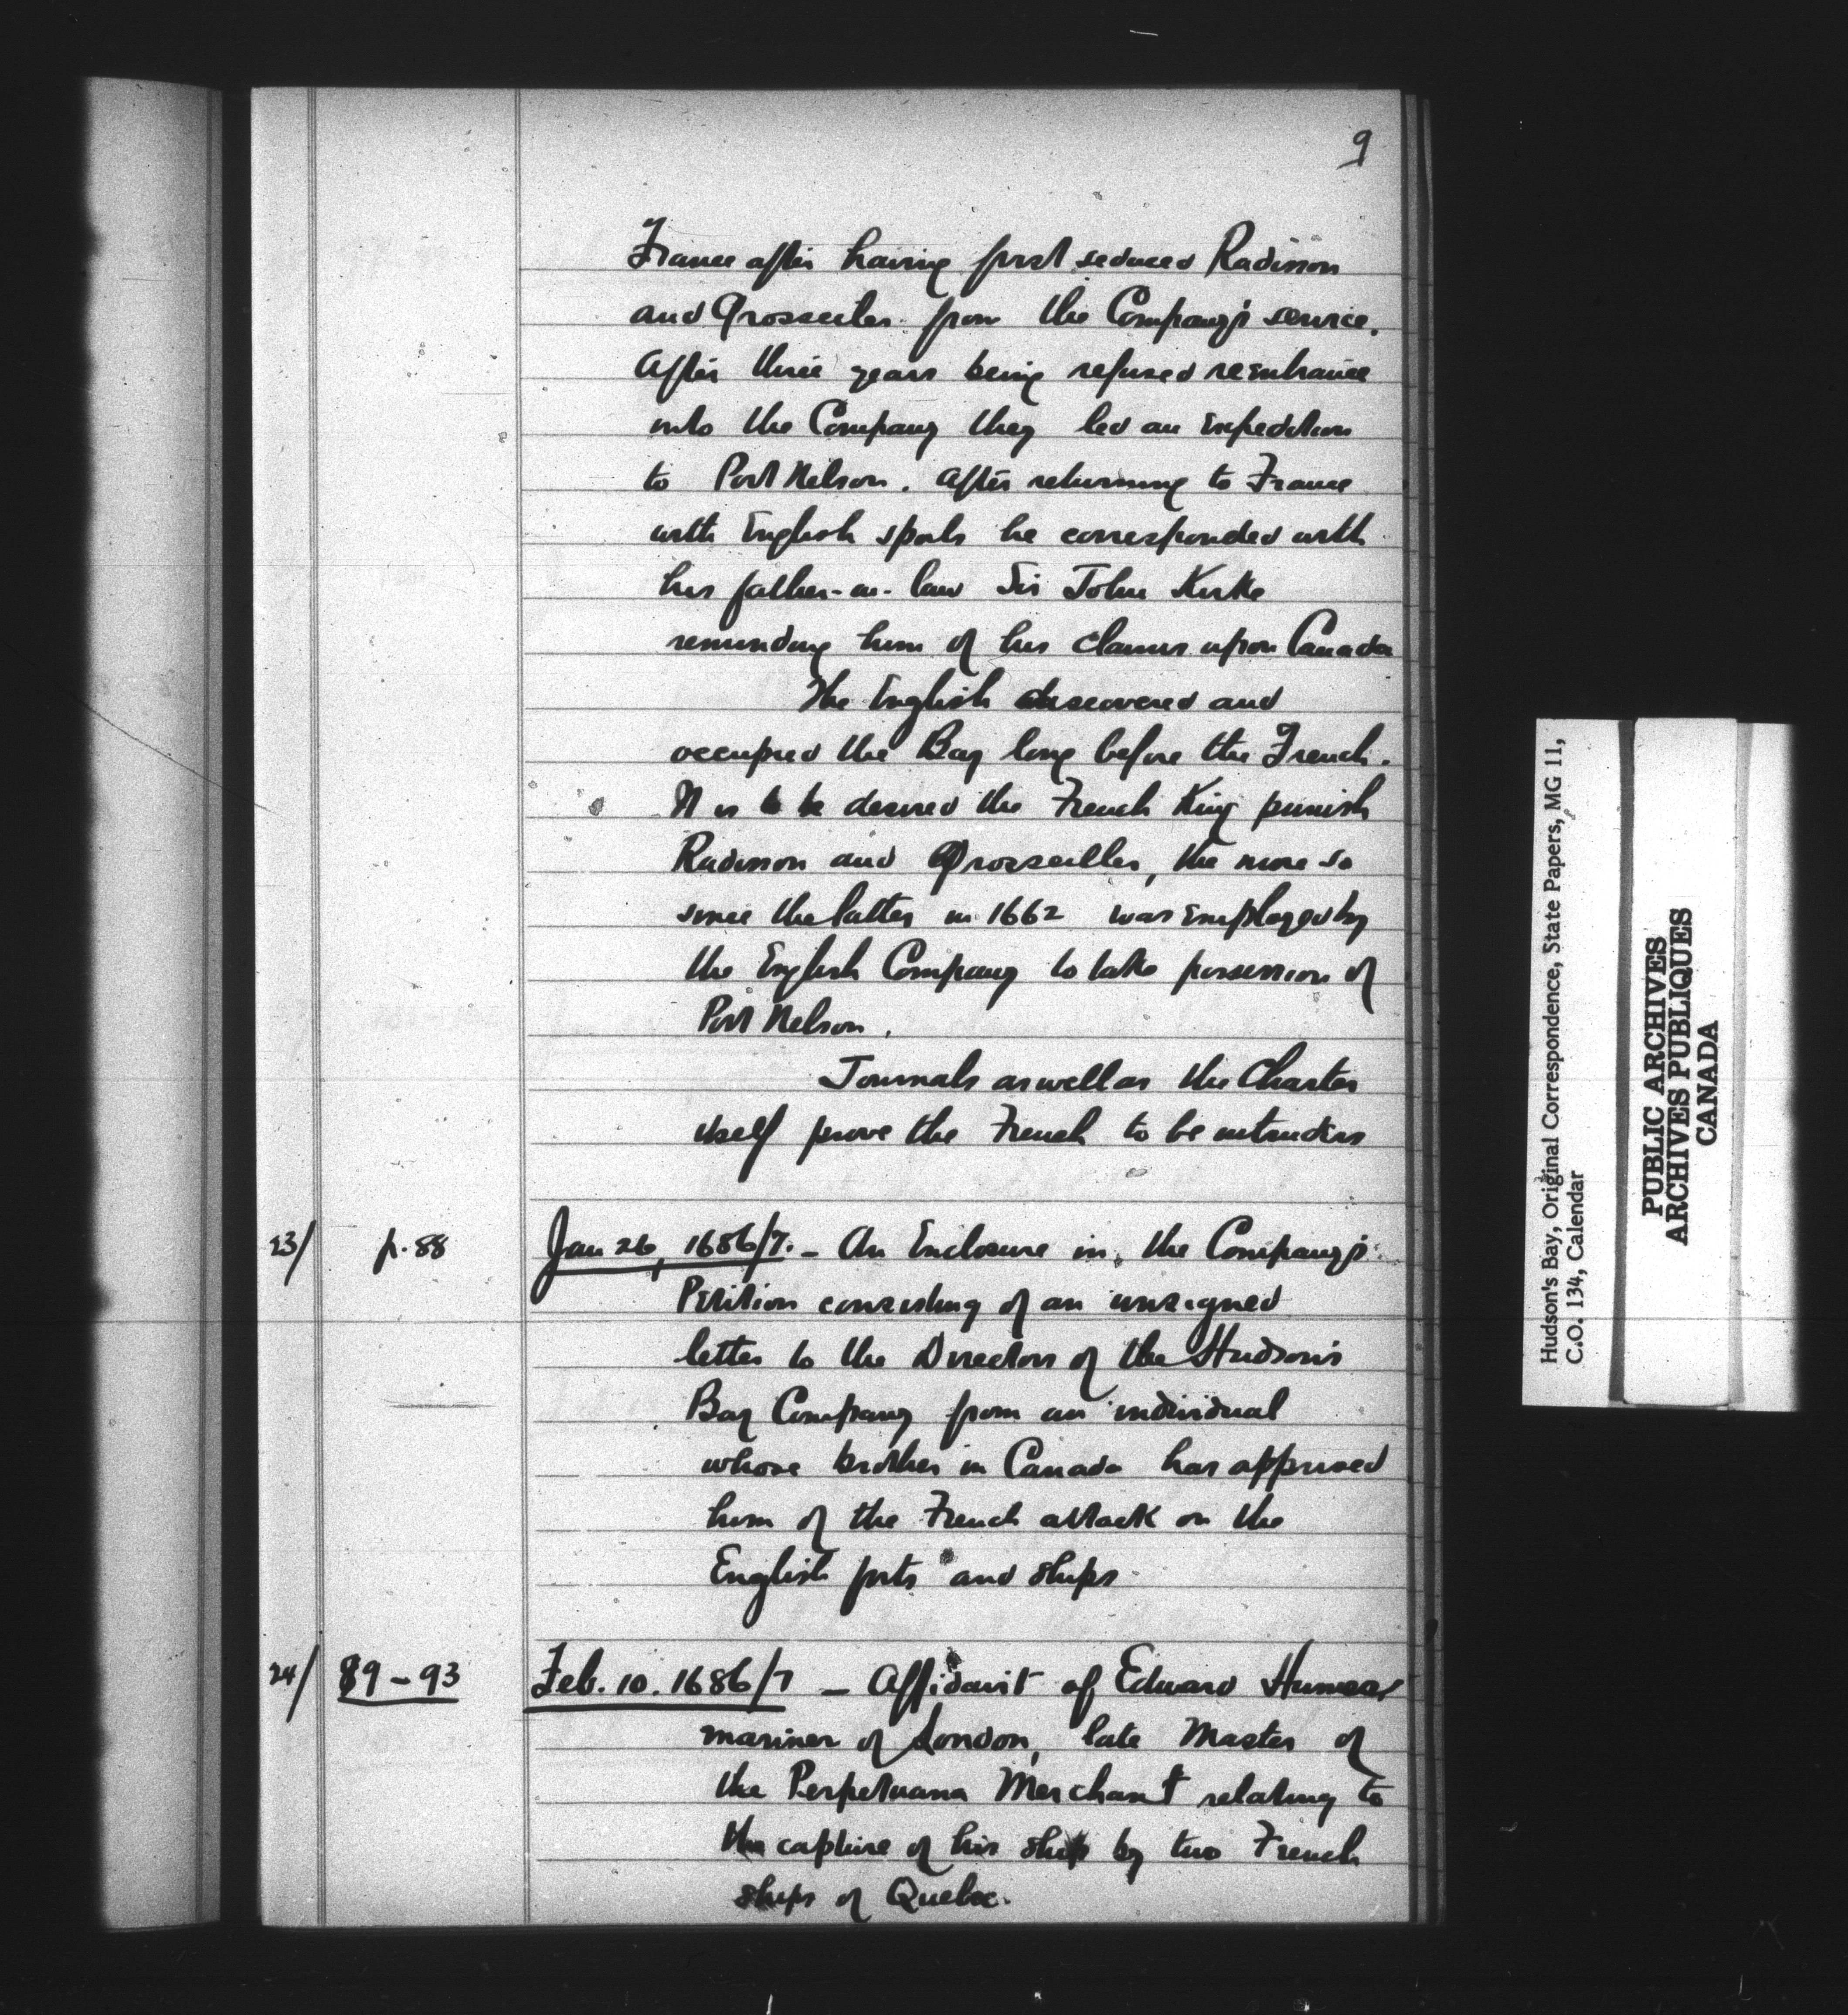 9
France after having first seduced Radisson
and Grosseiles from the Company's service.
After three years being refused reentrance
into the Company they led an Expedition
to Port Nelson. After returning to France
with English spoils he corresponded with
his father-in-law Sir John Kirke
reminding him of his claims upon Canada
The English discovered and
occupied the Bay long before the French.
It is to be desired the French King punish
Radisson and Grosseilles, the more so
since the latter in 1662 was Employed by
the English Company to take possession of
Port Nelson.
Journals as well as the Charter
itself prove the French to be intruders
23/ p. 88 Jan 26, 1686/7. - An Enclosure in, the Company's
Petition consisting of an unsigned
letter to the Directors of the Hudson's
Bay Company from an individual
whose brother in Canada has apprised
him of the French attack on the
English forts and ships
24/ 89-93 Feb. 10. 1686/7 - Affidavit of Edward Humes
mariner of London, late Master of
the Perpetuana Merchant relating to
the capture of his ship by two French
ships of Quebec.
Hudson's Bay, Original Correspondence, State Papers, MG 11,
C.O. 134, Calendar
PUBLIC ARCHIVES
ARCHIVES PUBLIQUES
CANADA